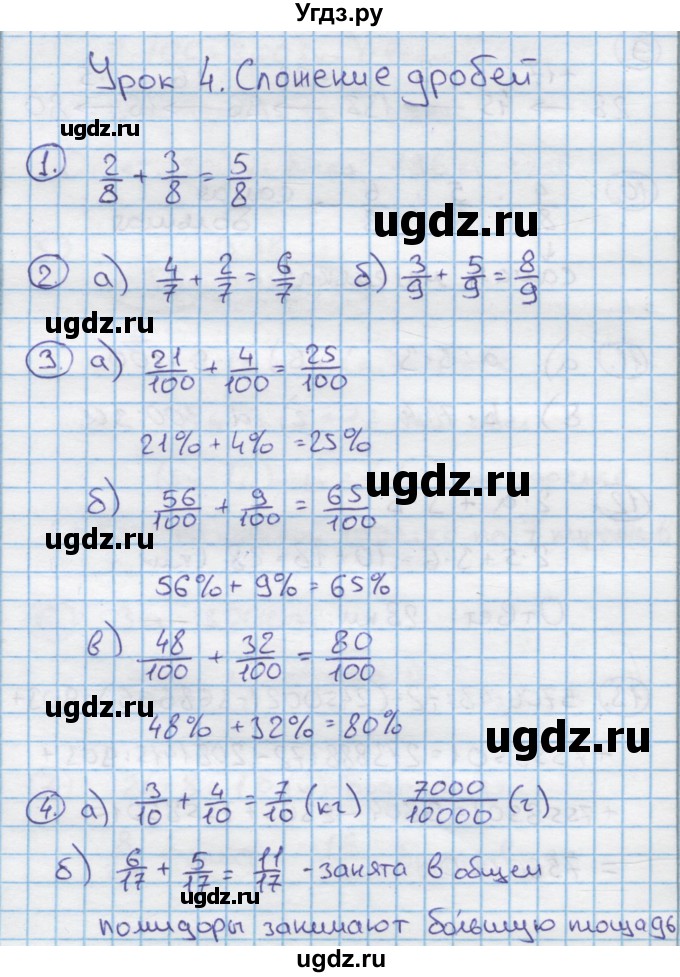 Угдз.ру
Урок 4. Сложение дробей
ugdz.ru
1. 2/8 + 3/8 = 5/8
ugdz.ru
2 а) 4/7 + 2/7 = 6/7 б) 3/9 + 5/9 = 8/9
ugdz.ru
3. а) 21/100 + 4/100 = 25/100
21% + 4% = 25%
ugdz.ru
б) 56/100 + 9/100 = 65/100
ugdz.ru
56% + 9% = 65%
в) 48/100 + 32/100 = 80/100
ugdz.ru
48% + 32% = 80%
ugdz.ru
4. а) 3/10 + 4/10 = 7/10 (кг) 7000/10000 (г)
б) 6/17 + 5/17 = 11/17 - занята в общем
ugdz.ru
помидоры занимают большую площадь
ugdz.ru